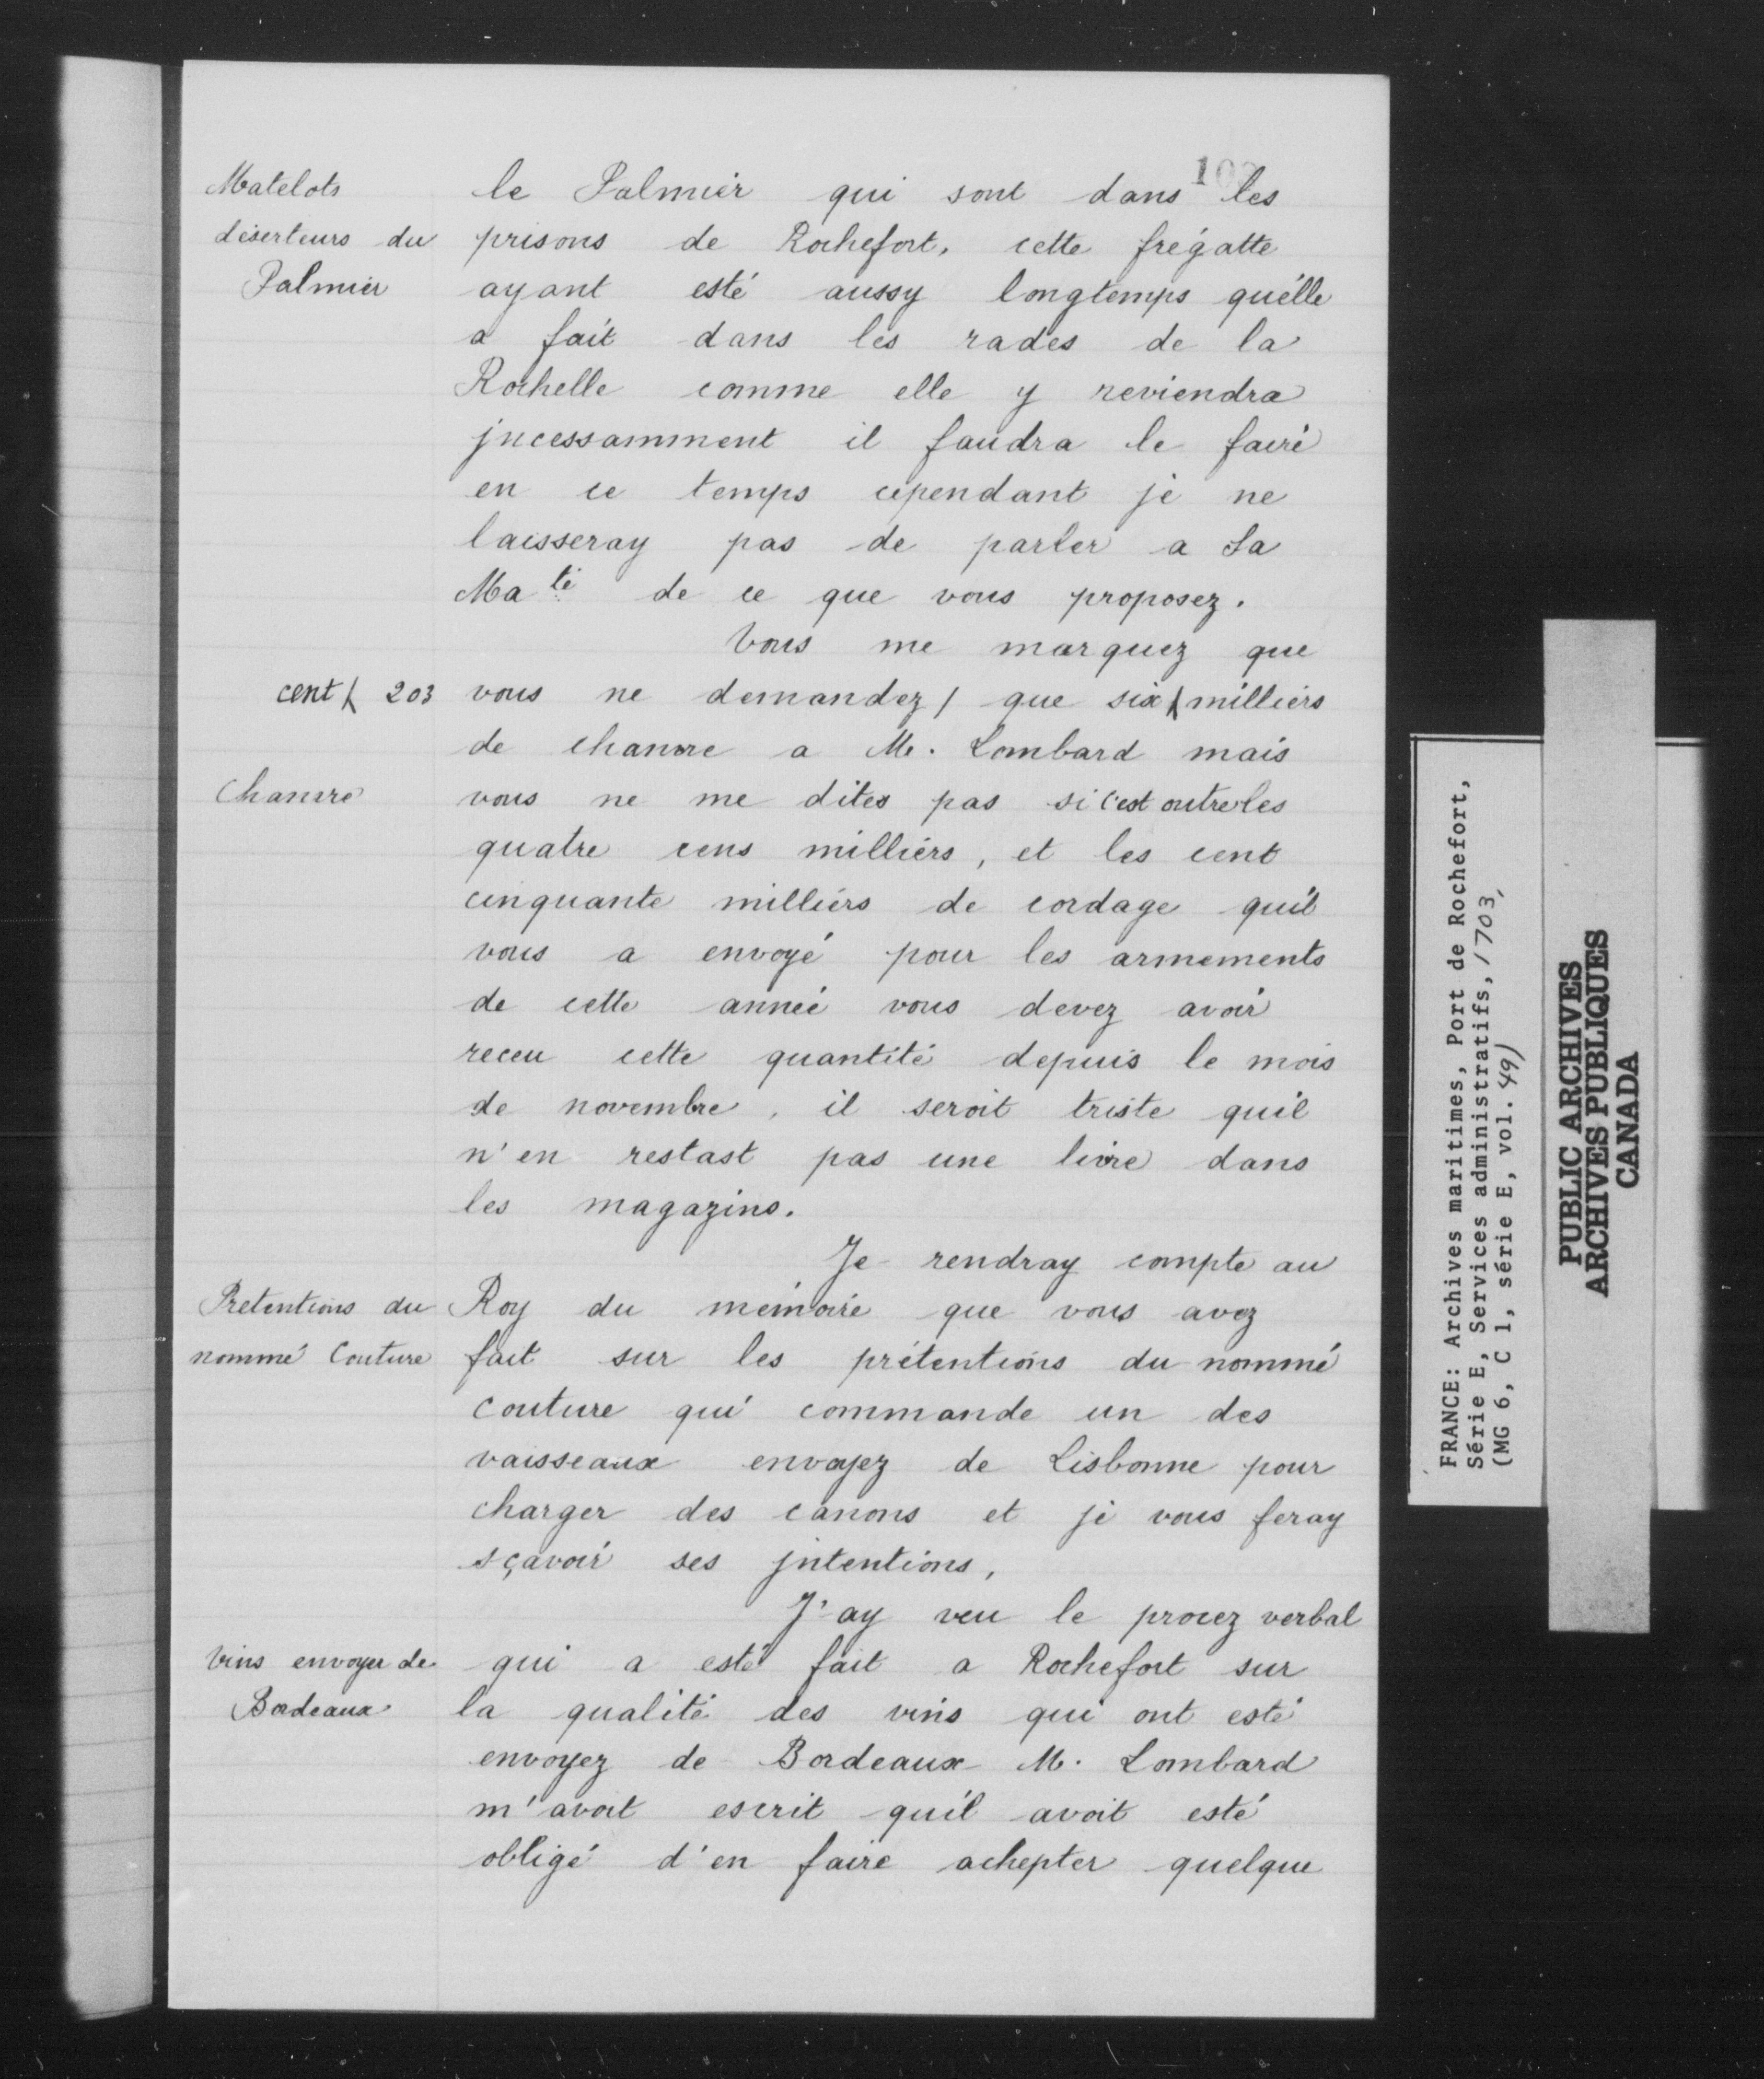 Matelots
déserteurs du
Palmier
le Palmier qui sont dans les
prisons de Rochefort, cette frégatte
ayant esté aussy longtemps qu'elle
a fait dans les rades de la
Rochelle comme elle y reviendra
jncessamment il faudra le faire
en ce temps cependant je ne
laisseray pas de parler a Sa
Ma té de ce que vous proposez.
Vous me marquez que
cent ( 203
vous ne demandez / que six ( milliers
de chanvre a M. Lombard mais
Chanvre
vous ne me dites pas si c'est outre les
quatre cens milliers, et les cent
cinquante milliers de cordage qu'il
vous a envoyé pour les armements
de cette année vous devez avoir
receu cette quantité depuis le mois
de novembre, il seroit triste quil
n'en restast pas une livre dans
les magazins.
Je rendray compte au
Prétentions du
nommé Couture
Roy du mémoire que vous avez
fait sur les prétentions du nommé
Couture qui commande un des
vaisseaux envoyez de Lisbonne pour
charger des canons et je vous feray
sçavoir ses jntentions,
J'ay veu le procez verbal
Vins envoyer de
Bordeaux
qui a esté fait a Rochefort sur
la qualité des vins qui ont esté
envoyez de Bordeaux M. Lombard
m'avoit escrit qu'il avoit esté
obligé d'en faire achepter quelque
FRANCE: Archives maritimes, Port de Rochefort,
Série E, Services administratifs, 1703,
(MG 6, C 1, série E, vol. 49)
PUBLIC ARCHIVES
ARCHIVES PUBLIQUES
CANADA